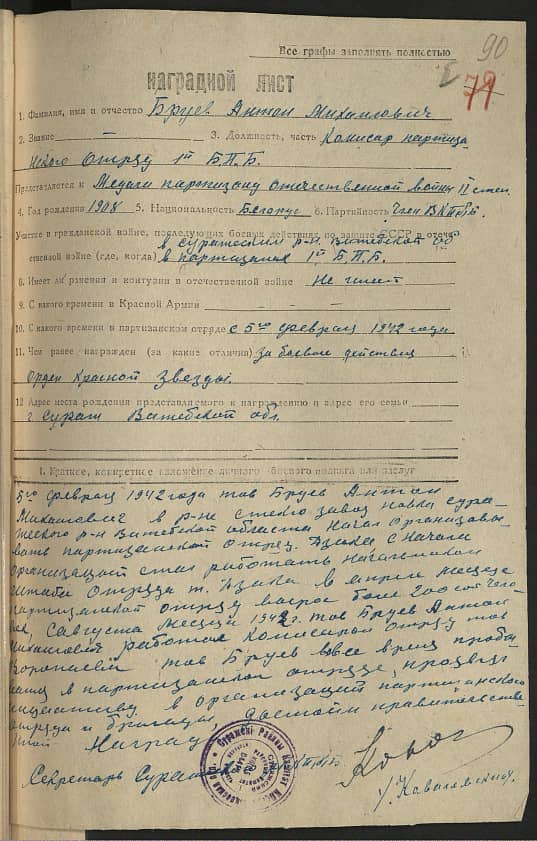 90
79
Все графы заполнять полностью
НАГРАДНОЙ ЛИСТ
1. Фамилия, имя и отчество Бруев Антон Михайлович
2. Звание — 3. Должность, часть Комисар партиза
нского Отряду 1й Б.П.Б.
Представляется к Медали партизану отечественной войны II степ.
4. Год рождения 1908 5. Национальность Белорус 6. Партийность Член ВКП(б)
Участие в гражданской войне, последующих боевых действиях по защите СССР и отече
ственной войне (где, когда) в суражском р-н. Витебской об
в партизанах 1й Б.П.Б.
8. Имеет ли ранения и контузии в отечественной войне Не имеет
9. С какого времени в Красной Армии - - -
10. С какого времени в партизанском отряде с 5го февраля 1942 года
11. Чем ранее награжден (за какие отличия) за боевые действия
Орден Красной Звезды.
12 Адрес места рождения представляемого к награждению и адрес его семьи
г. Сураж Витебской обл.
I. Краткое, конкретное изложение личного боевого подвига или заслуг
5го февраля 1942 года тов Бруев Антон
Михайлович в р-не стекло завод новка сура-
жского р-н Витебской области Начал Организовы-
вать партизанской Отряд. Дзака с Начала
Организаций стал работать Начальником
штаба Отряда т. Дзака в апреле месяце
партизанской отряд вырос более 200 сот чело
век, с августа месяца 1942 г. тов Бруев Антон
Михайлович работая Комисарой Отряду тов
Воропаевой тов Бруев во все время пробы
вания в партизанской отряде, проявил
инициативу в Организаций партизанского
отряда и бригады, достоин правительстве
нной Наград
Секретарь Сураж КП(б)Б.
/Ковалевский/